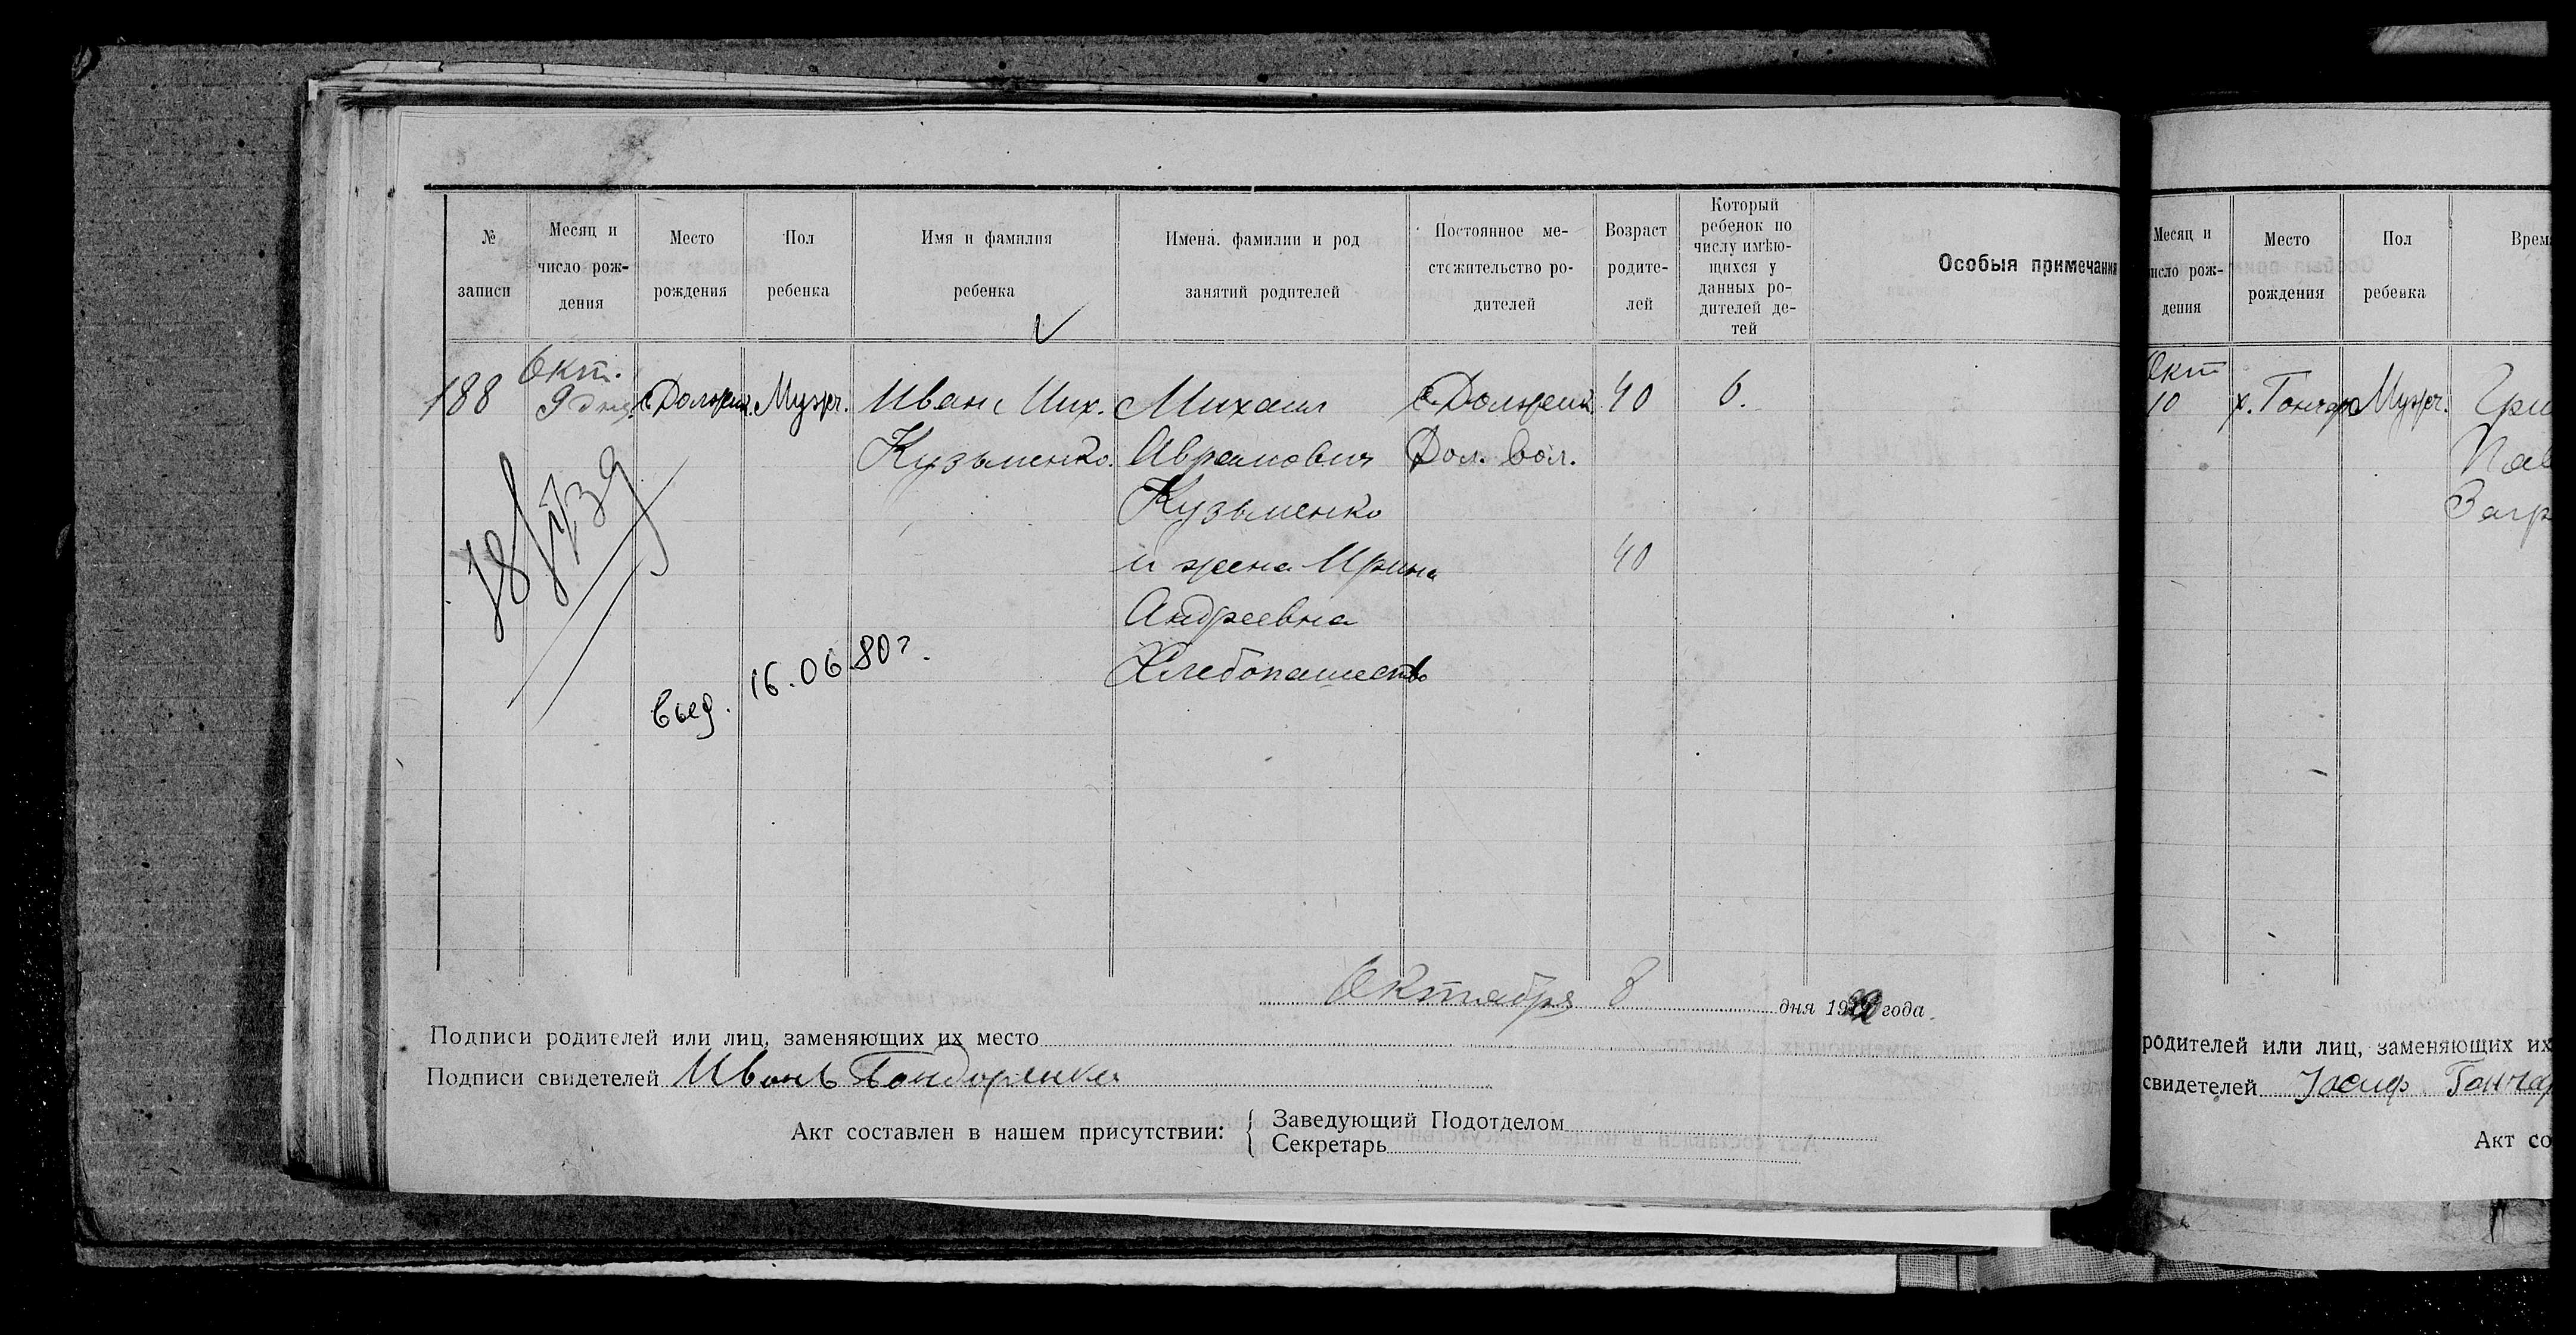 № записи
Месяц и число рождения
Место рождения
Пол ребенка
Имя и фамилия ребенка
Имена, фамилии и род занятий родителей
Постоянное местожительство родителей
Возраст родителей
Который ребенок по числу имѣющихся у данных родителей детей
Особыя примечания
188
Окт.
9 дня
Мужч.
Иван Мих.
Кузьменко.
Михаил
Аврамович
Кузьменко
и жена Ирина
Андреевна
Хлебопашество
Дол. вол.
40
40
6.
Выд. 16.06.80г.
Октября 8 дня 19 года.
Подписи родителей или лиц, заменяющих их место
Подписи свидетелей Иванъ
Акт составлен в нашем присутствии:
Заведующий Подотделом
Секретарь
Месяц и
число рож-
дения
Место
рождения
Пол
ребенка
Врем
Окт
10
х. Гончар
Мужч.
Гри
Пав
Загр
родителей или лиц, заменяющих их
свидетелей Иосиф Гончар
Акт со